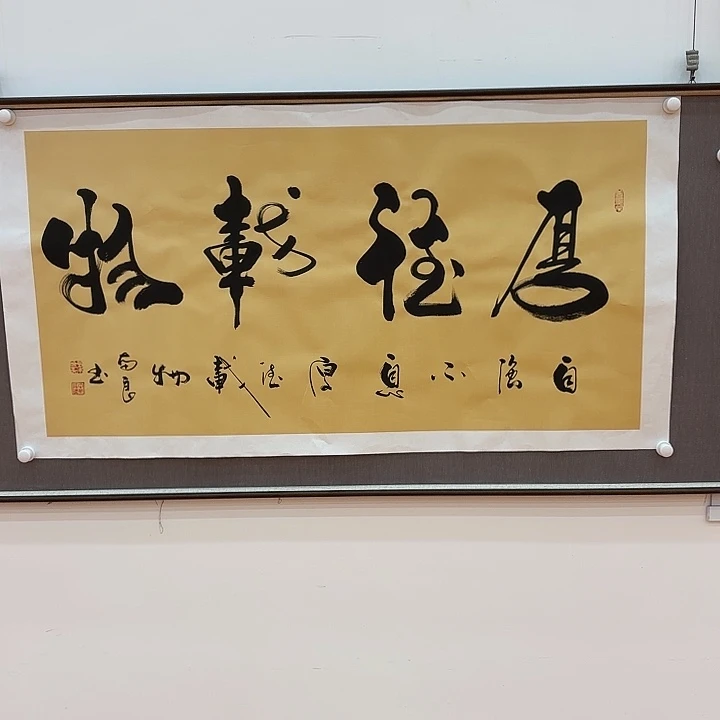 厚德載物
自強不息厚德載物
书